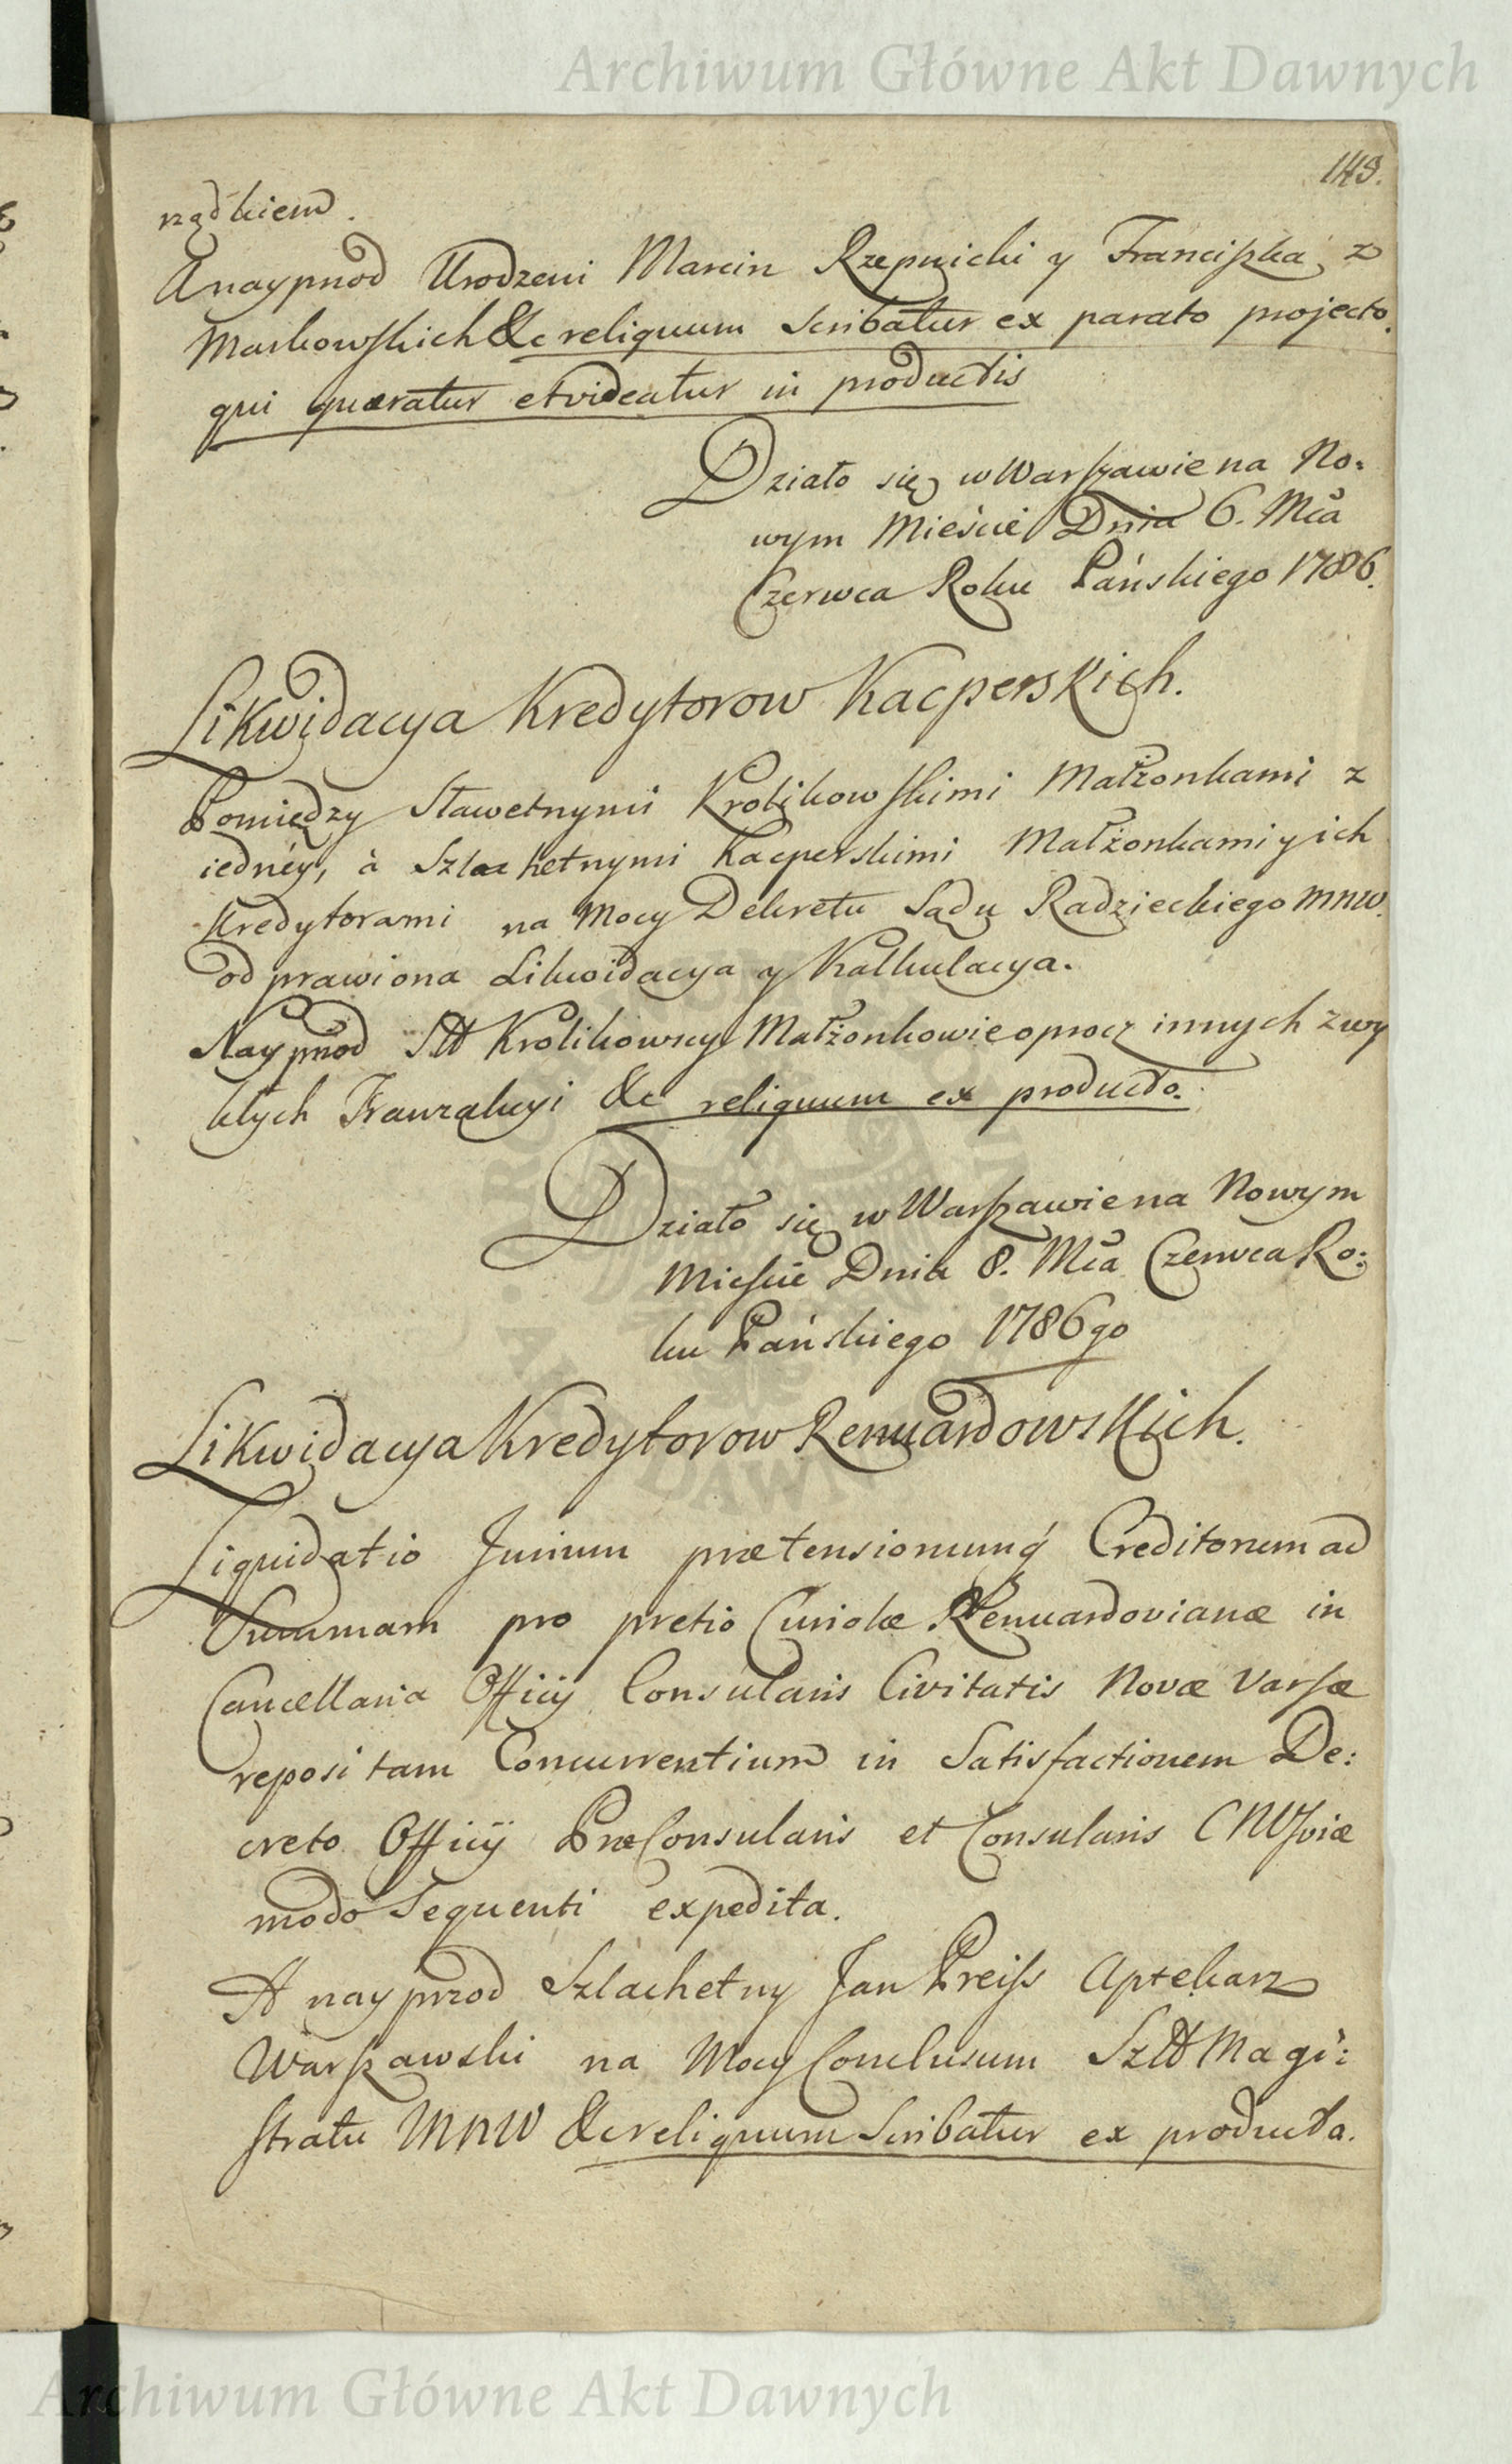 Archiwum Główne Akt Dawnych
rządkiem.
A naypr̃od Urodzeni Marcin Rzepnicki y Franciszka z
Markowskich &c reliquum scribatur ex parato projecto.
qui quæratur et videatur in productis
Działo się w Warszawie na No:
wym Mieście Dnia 6. Mĉa
Czerwca Roku Pańskiego 1786.
Likwidacya Kredytorow Kacperskich.
Pomiędzy Sławetnymi Krolikowskimi Małżonkami z
iednéy, à Szlachetnymi Kacperskimi Małżonkami y ich
Kredytorami na Mocy Dekretu Sądu Radzieckiego MNW.
odprawiona Likwidacya y Kalkulacya.
Naypr̃od Stt Krolikowscy Małżonkowie oprocz innych zwy
kłych &c reliquum ex producto.
Działo się w Warszawie na Nowym
Mieście Dnia 8. Mĉa Czerwca Ro:
ku Pańskiego 1786go
Likwidacya Kredytorow Renuardowskich.
Liquidatio Jurium prætensionumq́ Creditorum ad
Summam pro pretio Curiolæ Renuardovianæ in
Cancellaria Officij Consularis Civitatis Novæ Varsæ
repositam Concurrentium in Satisfactionem De:
creto Officij PræConsularis et Consularis CNVsviæ
modo Sequenti expedita.
A nayprzod Szlachetny Jan Preiss Aptekarz
Warszawski na Mocy Conclusum Szltt Magi:
stratu MNW &c reliquum Scribatur ex producta.
Archiwum Główne Akt Dawnych